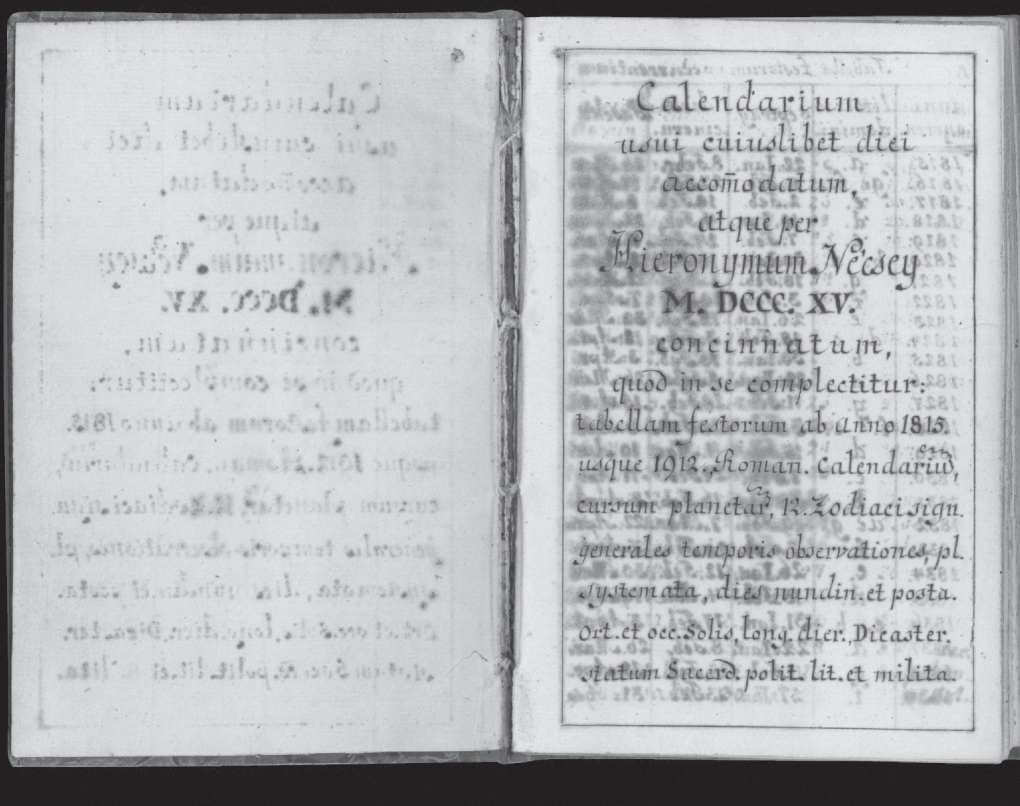 Calendarium
usui cuiuslibet diei
accom̄odatum,
atque per
Hieronymum Nécsey
M. DCCC. XV.
concinnatum,
quod in se complectitur:
tabellam festorum ab anno 1815.
usque 1912., Roman. Calendariū,
cursum planetar, 12. Zodiaci sign.
generales temporis observationes, pl.
systemata, dies nundin. et posta.
Ort. et occ. Solis, long. dier. Dicaster.
statum Sacerd. polit. lit. et milita.